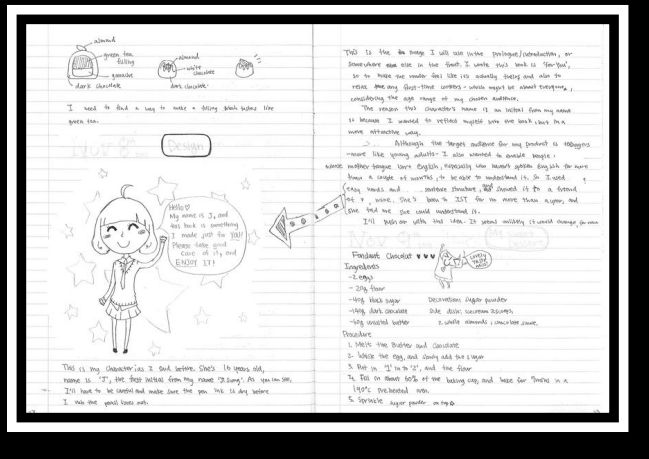 almond
green tea
filling
ganache
dark chocolate
almond
white
chocolate
dark chocolate
I need to find a way to make a filling which tastes like
green tea.
Design
Hello ♡
My name is J, and
this book is something
I made just for YOU!
Please take good
care of it, and
ENJOY IT!
This is my character as I said before. She's 16 years old,
name is 'J', the first initial from my name As you can see,
I'll have to be careful and make sure the pen ink is dry before
I rub the pencil lines out.
This is the image I will use in the prologue/introduction, or
somewhere else in the front. I wrote this book is 'for You',
so to make the reader feel like its actually theirs and also to
relax any first-time cookers - which might be almost everyone,
considering the age range of my chosen audience.
The reason this characters name is an initial from my name
is because I wanted to reflect myself into the book, but in a
more attractive way.
Although the target audience for my product is teenagers
-more like young adults- I also wanted to enable people,
whose mother tongue isn't English, especially who haven't spoken English for more
than a couple of months, to be able to understand it. So I used
easy words and sentence structure, and showed it to a friend
of mine. She's been to IST for no more than a year, and
she told me she could understand it.
I'll push on with this idea. It seems unlikely it would change
Fondant Chocolat ♥ ♥ ♥
Lovely
Ingredients
-2 eggs
- 20g flour
-40g black sugar Decoration: sugar powder
-140g dark chocolate Side dish: icecream
-60g unsalted butter 2 whole almonds, chocolate sauce
Procedure
1. Melt the Butter and chocolate
2. Whisk the egg, and slowly add the sugar
3. Put in '1' in to '2', and the flour
4. Fill in about 60% of the baking cup, and bake for in a
190°C preheated oven.
5. Sprinkle sugar powder on top